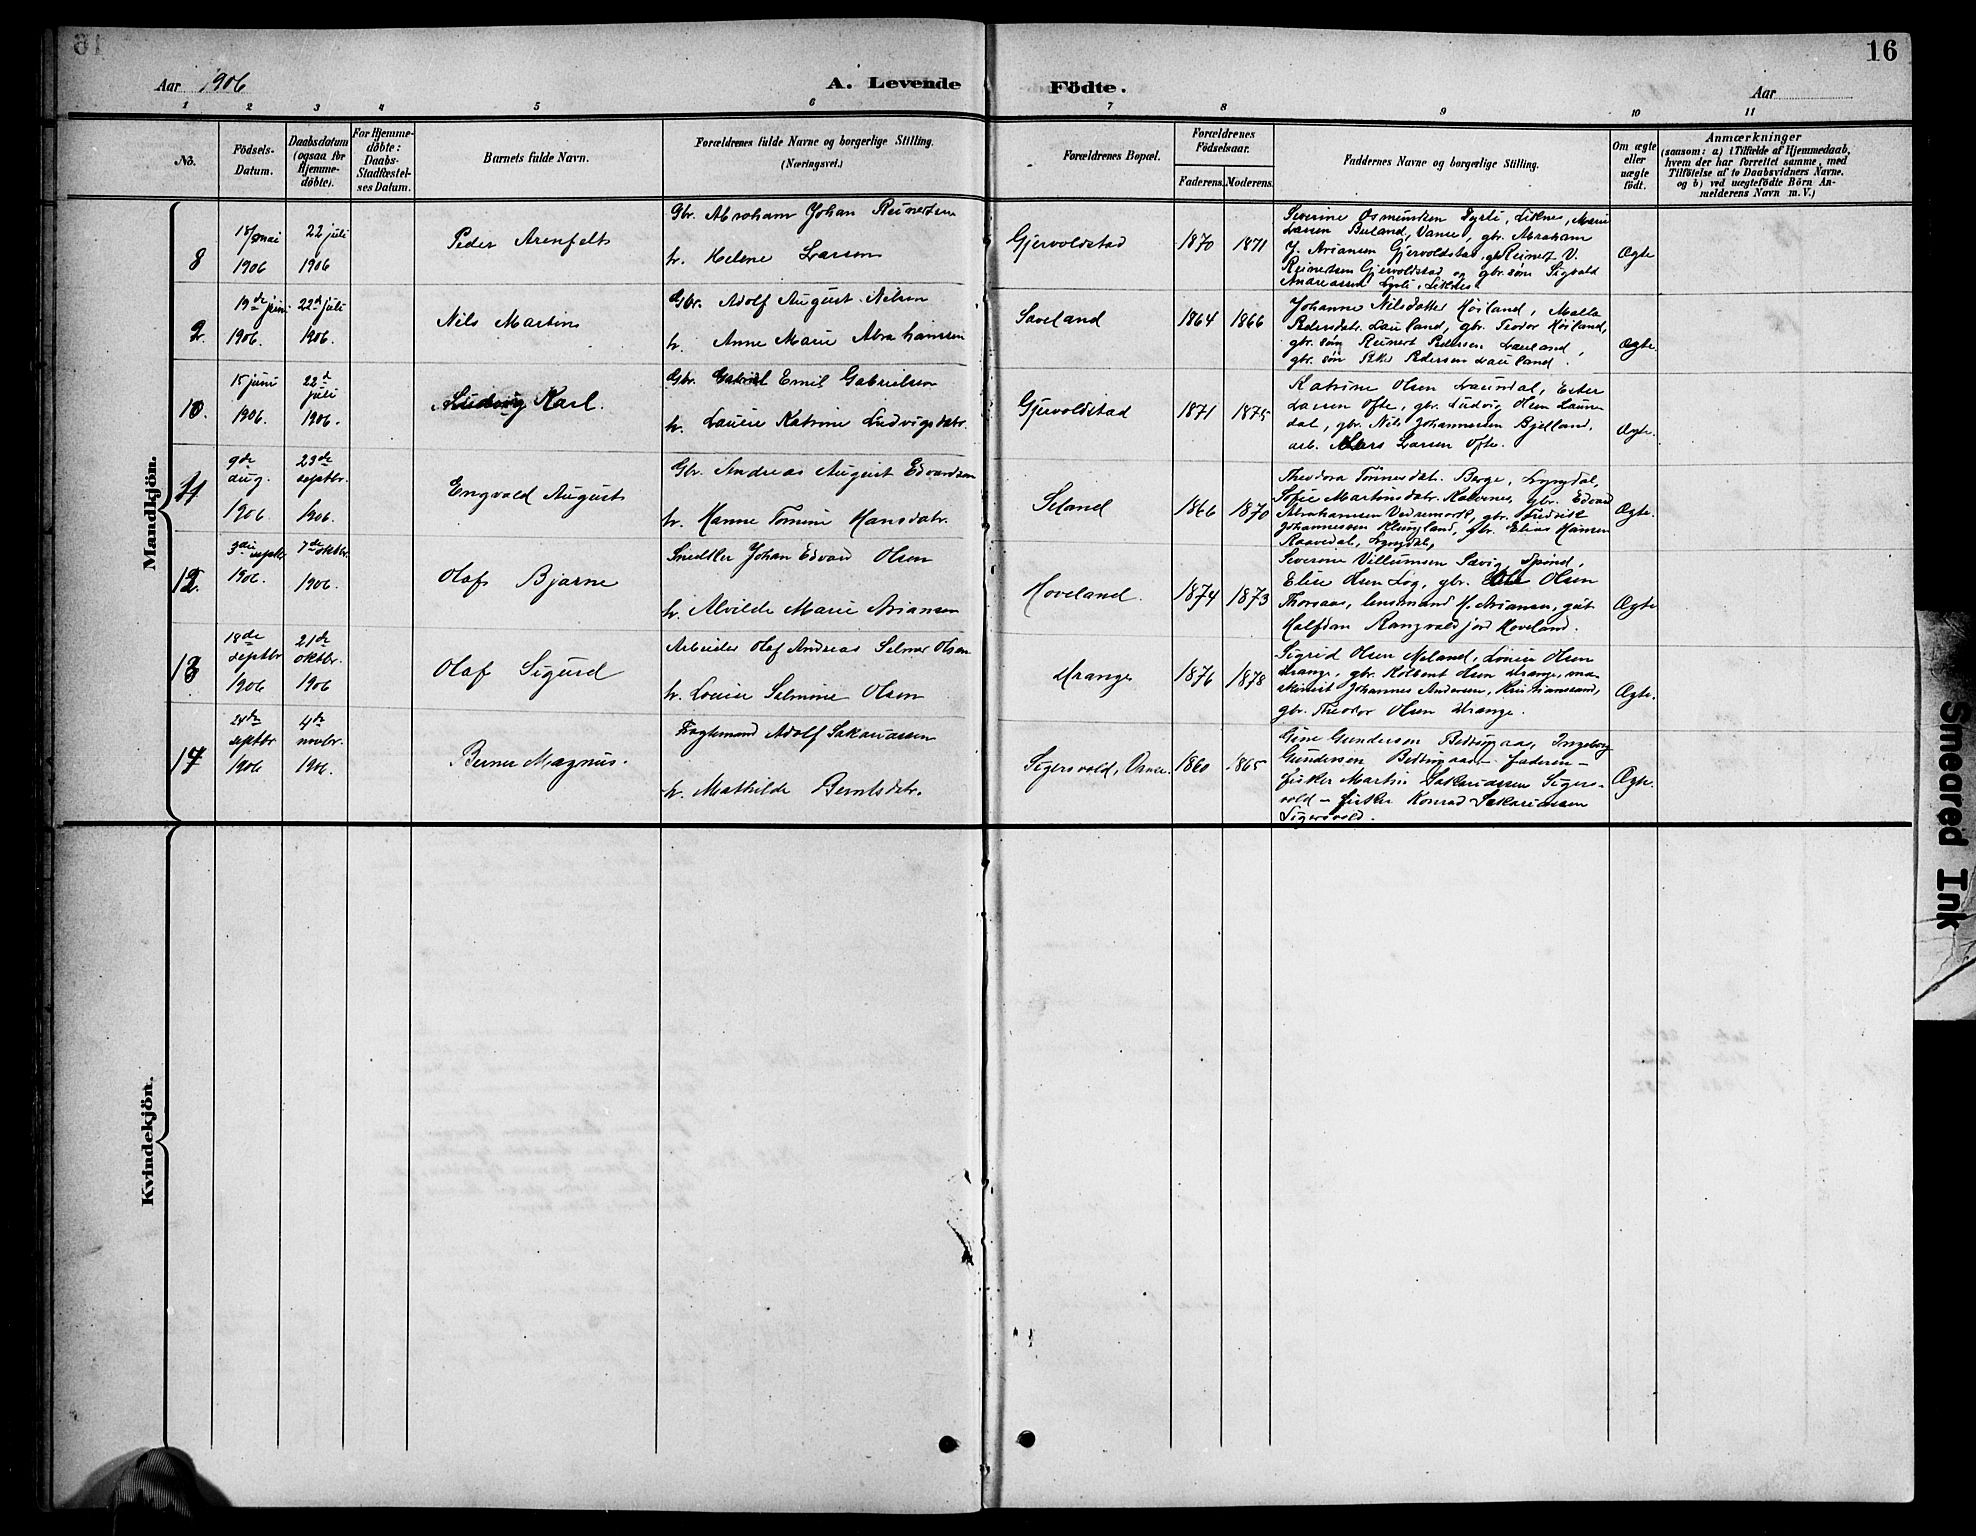 16
Aar 1906
A. Levende Födte.
Aar
1 2 3 4 5 6 7 8 9 10 11
No.
Födsels-Datum.
Daabsdatum (ogsaa for Hjemme-döbte).
For Hjemme-döbte: Daabs-Stadfæstel-ses Datum.
Barnets fulde Navn.
Forældrenes fulde Navne og borgerlige Stilling.
(Næringsvei.)
Forældrenes Bopæl.
Forældrenes Födselsaar.
Faderens. Moderens.
Faddernes Navne og borgerlige Stilling.
Om ægte eller uægte födt.
Anmærkninger
(saasom: a) i Tilfælde af Hjemmedaab,
hvem der har forrettet samme, med
Tilföielse af to Daabsvidners Navne,
og b) ved uægtefödte Börn An-
melderens Navn m. V.)
Mandkjön.
8
18/5 mai 1906
22 juli 1906
Peder Arenfelt
Gbr. Abraham Johan Reinertsen
h. Helene Larsen
Gjervoldstad
1870 1871
Severine Osmundsen Dyrli, Liknes, Marie
Larsen Buland, Vanse, gbr. Abraham
J. Ariansen Gjervoldstad, gbr Reinert V.
Reinertsen Gjervoldstad og gbr. søn Sigvald
Andreassen Dyrli, Liknes.
Ægte
9
19de juni 1906.
22de juli 1906.
Nils Martin
Gbr. Adolf August Nilsen
h. Anne Marie Abrahamsen
Saveland
1864 1866
Johanne Nilsdatter Høiland, Malla
Pedersdatr. Lauland, gbr. Teodor Høiland,
gbr. søn Reinert Pedersen Lauland,
gbr. søn Peder Pedersen Lauland.
Ægte.
10.
15 juni 1906.
22de juli 1906.
Ludvig Karl.
Gbr. Gabriel Emil Gabrielsen
h. Lauise Katrine Ludvigsdatr.
Gjervoldstad
1871 1875
Katrine Olsen Laundal, Ester
Larsen Ofte, gbr. Ludvig Olsen Laun-
dal, gbr. Nils Johannesen Bjelland,
arb. Lars Larsen Ofte.
Ægte.
11
9de aug. 1906
23de septbr. 1906.
Engvald August
Gbr. Andreas August Edvardsen
h. Hanne Tomine Hansdatr.
Seland
1866 1870
Theodora Tønnesdat. Berge, Lyngdal,
Sofie Martinsdatr. Kalvenes, gbr. Edvard
Abrahamsen Vedremork, gbr. Fredrik
Johannessen Klungland, gbr. Elias Hansen
Raavedal, Lyngdal,
Ægte.
12.
3die septbr 1906.
7de oktbr. 1906.
Olaf Bjarne
Snedker Johan Edvard Olsen
h. Alvilde Marie Ariansen
Hoveland.
1874 1873
Severine Villumsen Sævig, Spind,
Elise Olsen Log, gbr. Olsen
Thorsaas, lensmand H. Ariansen, gut
Halfdan Rangvaldsjord Hoveland.
Ægte
13
18de septbr 1906
21de oktbr. 1906
Olaf Sigurd
Arbeider Olaf Andreas Selmer Olsen
h. Louise Selmine Olsen
Drange
1876 1878
Sigrid Olsen Neland, Louise Olsen
Drange, gbr. Kolbent Olsen Drange, ma-
skinist Johannes Andersen, Kristianssand,
gbr. Theodor Olsen Drange.
Ægte.
14
24de septbr 1906
4de novbr. 1906.
Berner Magnus.
Fogtemand Adolf Sakariassen
h. Mathilde Berntsdatr.
Sigersvold, Vanse.
1860 1865
Gine Gundersen Bedringaas, Ingeborg
Gundersen Bedringaas – faderen –
fisker Martin Sakariassen Sigers-
vold – fisker Konrad Sakariassen
Sigersvold.
Ægte.
Kvindekjön.
Smeared Ink